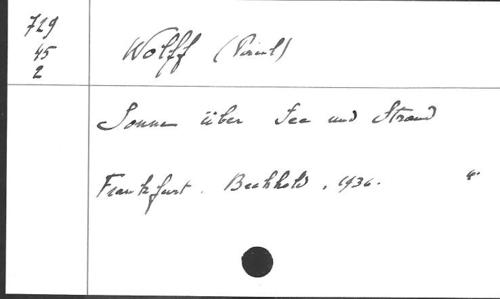 729
45
2
Wolff (Paul)
Sonne über See und Strand
Frankfurt. Bechhold, 1936.